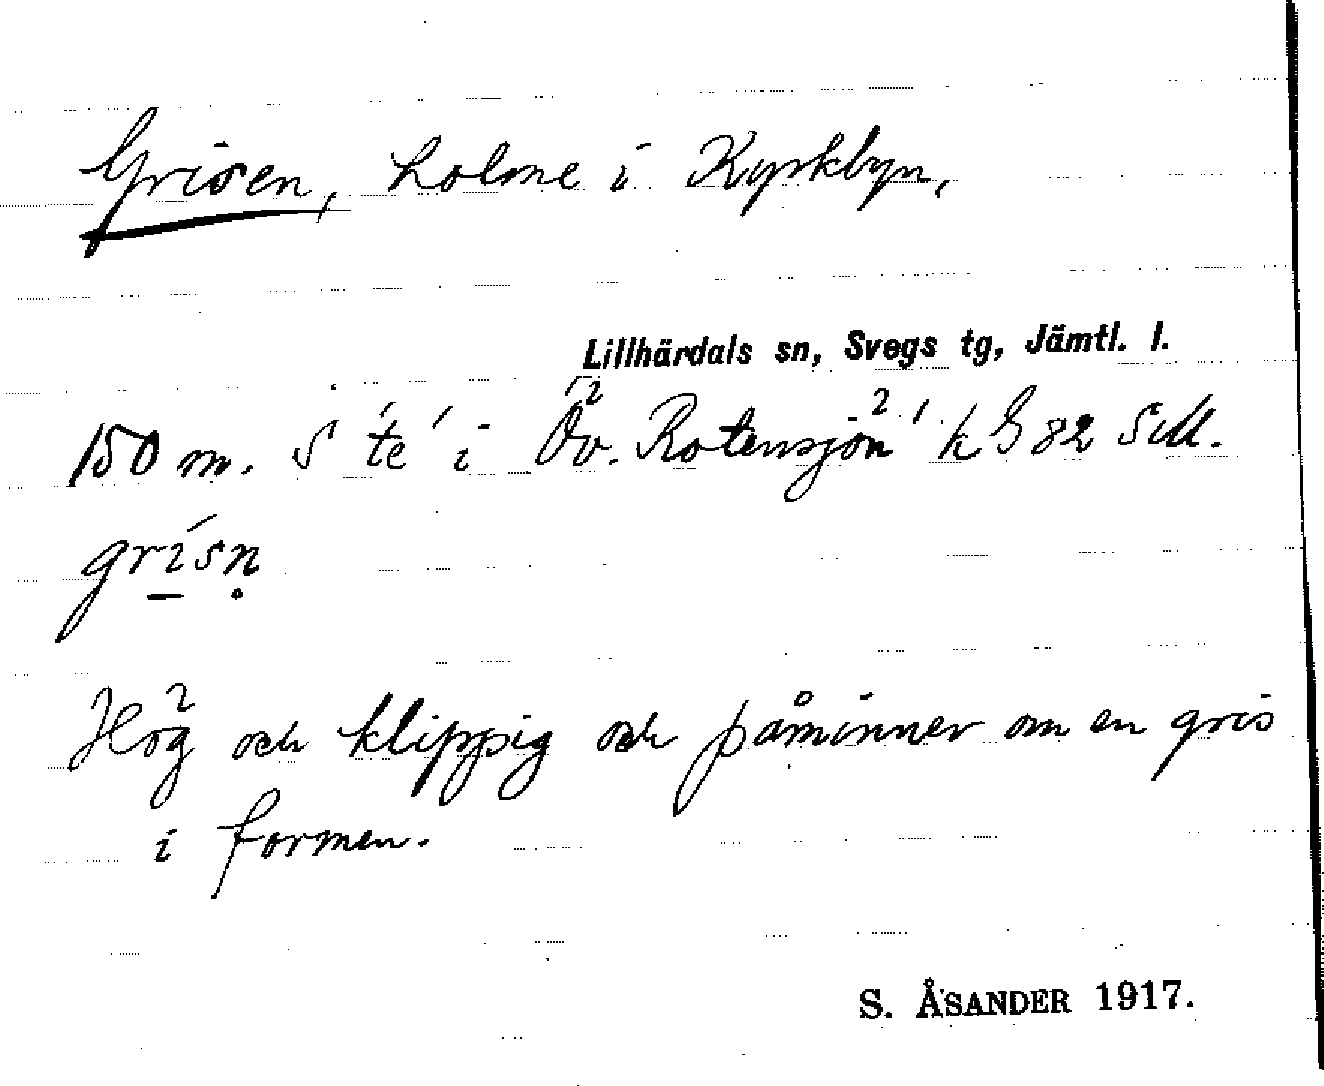 Grisen, holme i Kyrkbyn,
Lillhärdals sn, Svegs tg, Jämtl. l.
150 m. S te' i Öv. Rotensjön k G 82 SM.
grísn
Hög och klippig och påminner om en gris
i formen.
S. ÅSANDER 1917.